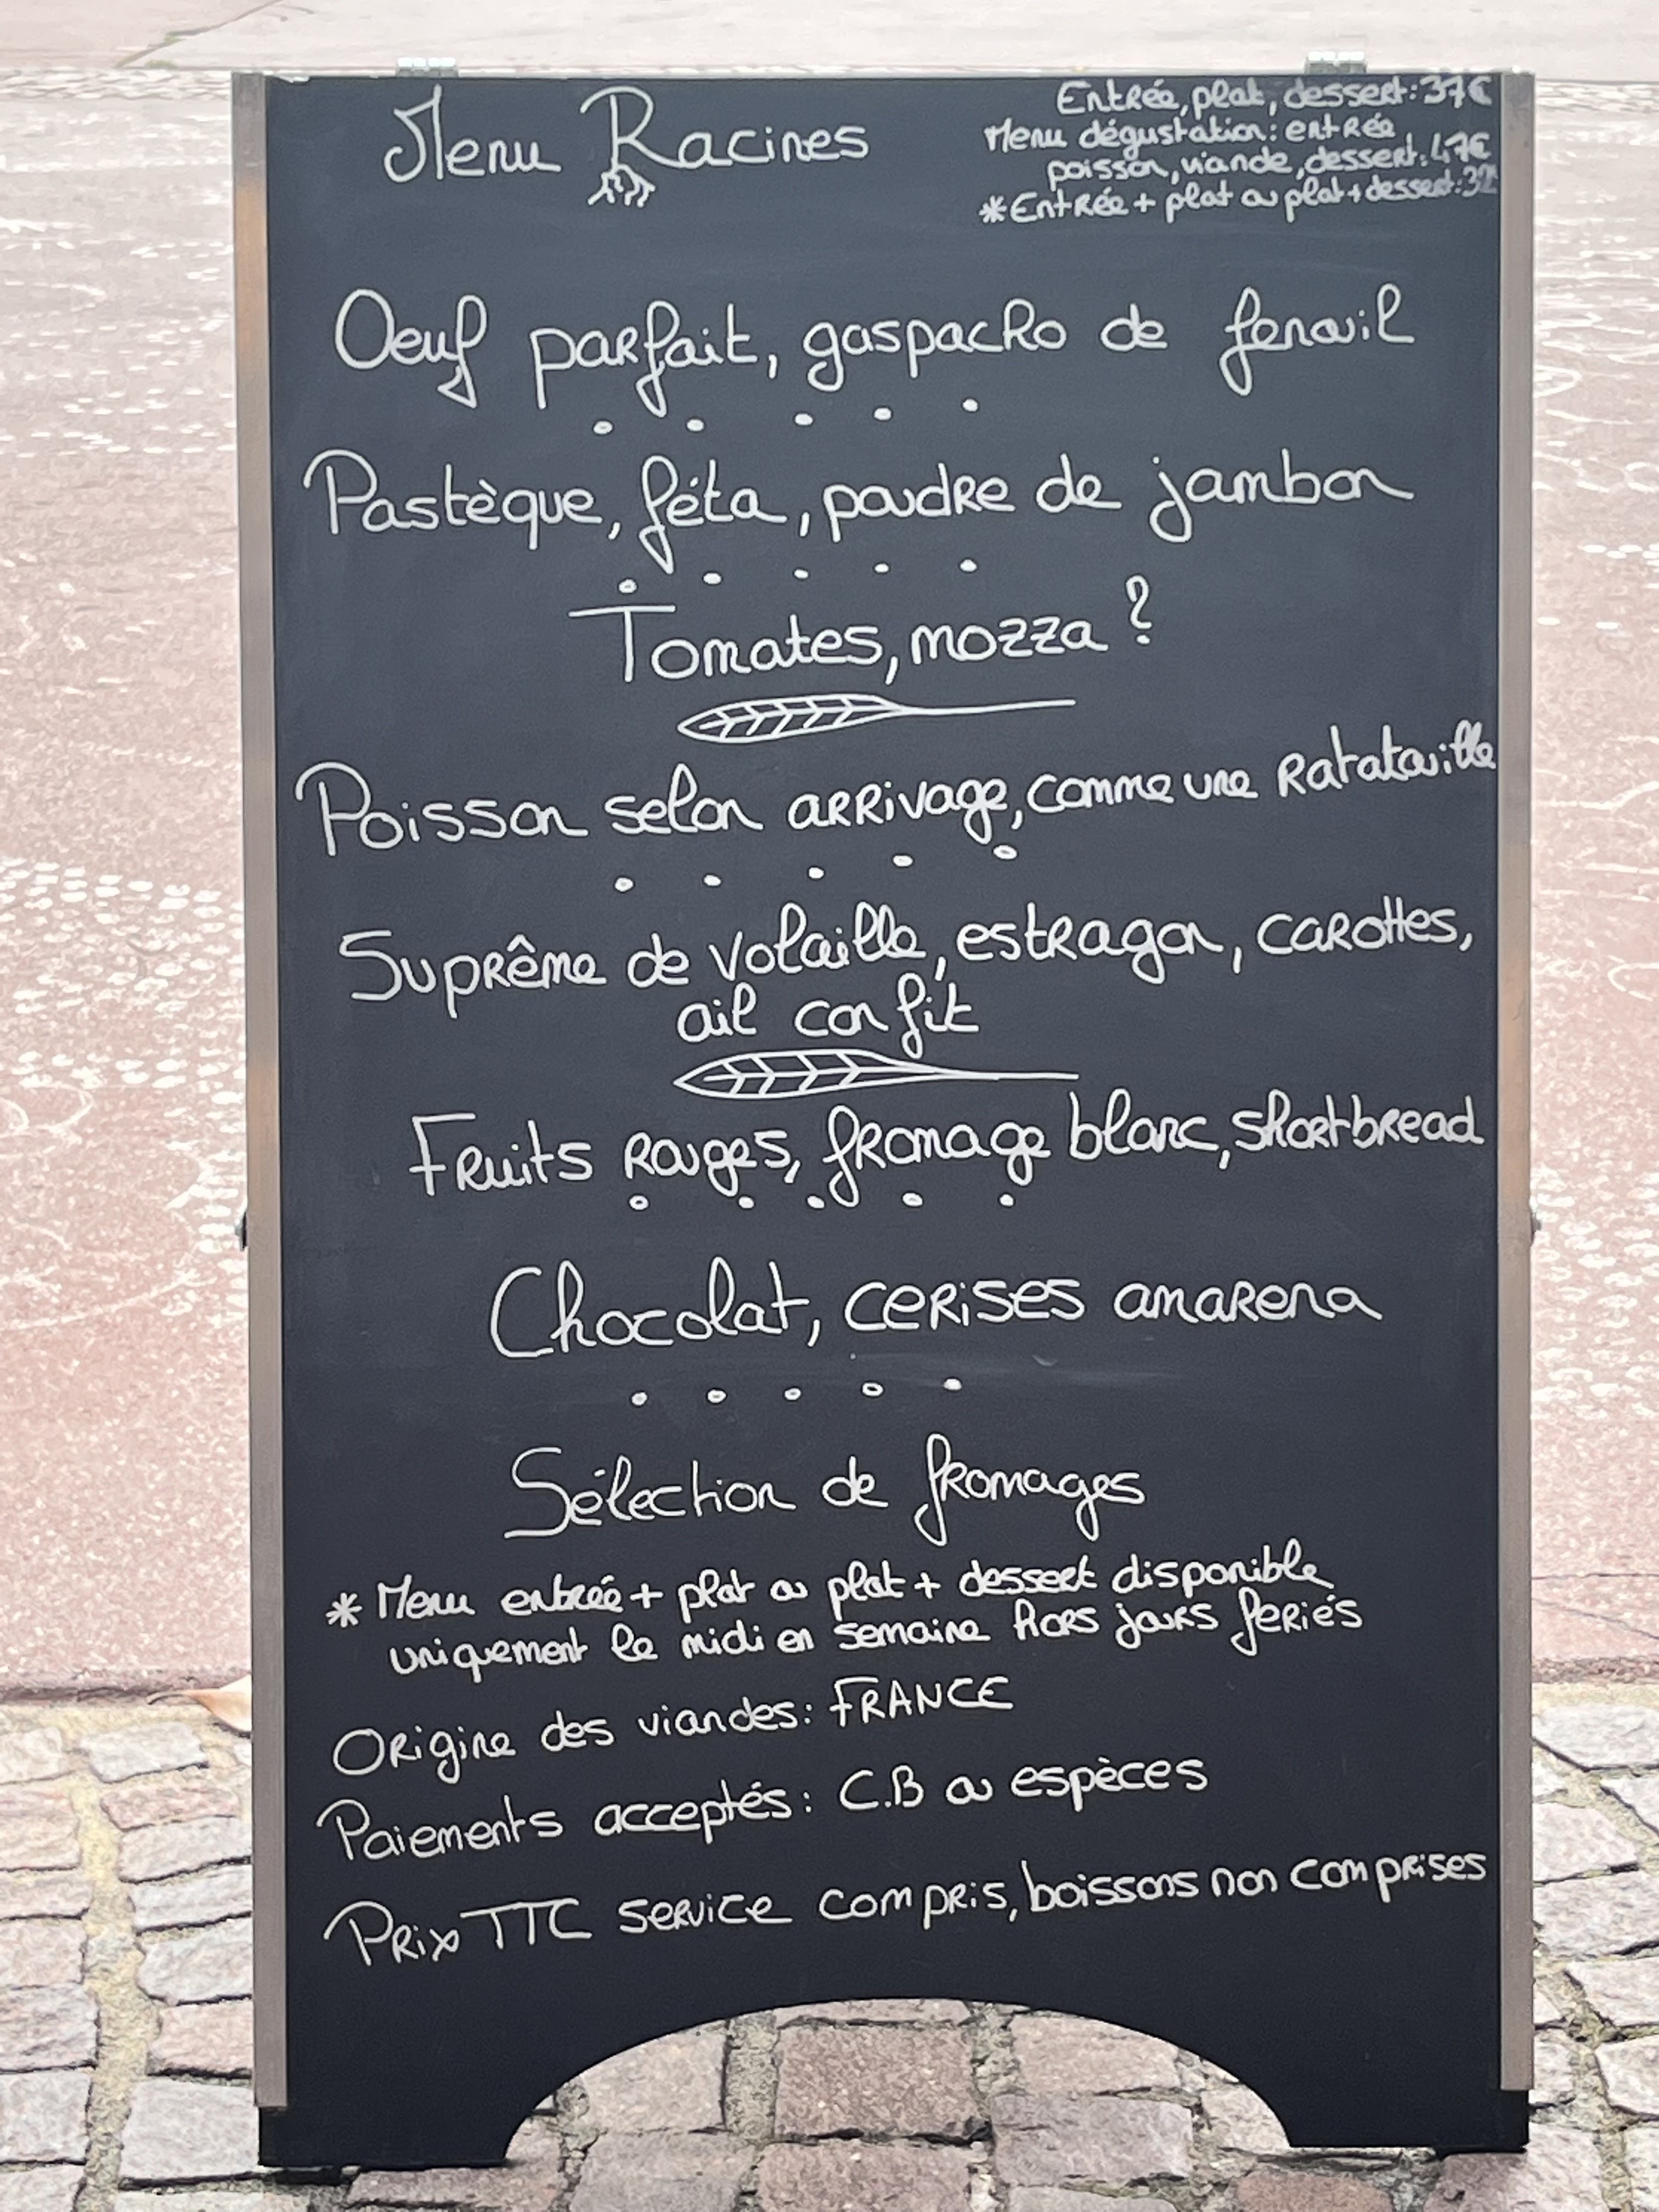 Menu Racines
Entrée, plat, dessert: 37€
Menu dégustation: entrée
poisson, viande, dessert: 47€
*Entrée + plat ou plat + dessert: 32
Oeuf parfait, gaspacho de fenouil
Pastèque, féta, poudre de jambon
Tomates, mozza ?
Poisson selon arrivage, comme une Ratatouille
Suprême de volaille, estragon, carottes,
ail confit
Fruits rouges, fromage blanc, shortbread
Chocolat, cerises amarena
Sélection de fromages
* Menu entrée + plat ou plat + dessert disponible
uniquement le midi en semaine hors jours feriés
Origine des viandes: FRANCE
Paiements acceptés: C.B ou espèces
Prix TTC service compris, boissons non comprises